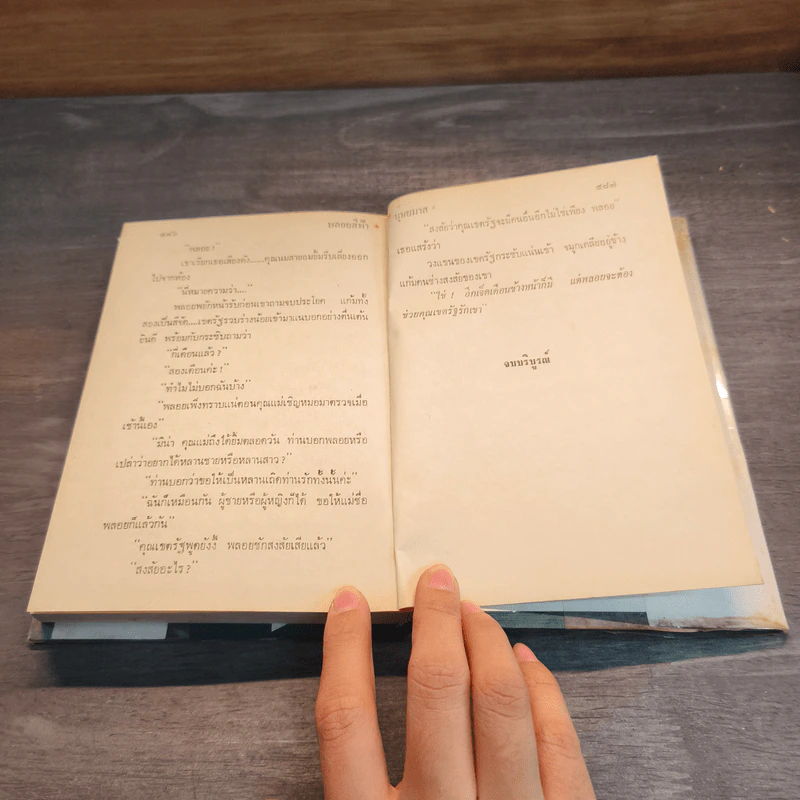 ๘๘๖ พลอยสีฟ้า
"พลอย!"
เขาเรียกเธอเสียงดัง.....คุณนมสายอมยิ้มรีบเลี่ยงออก
ไปจากห้อง
"นี่หมายความว่า...."
พลอยพยักหน้ารับก่อนเขาถามจบประโยค แก้มทั้ง
สองเป็นสีจัด....เขตรัฐรวบร่างน้อยเข้ามาแนบอกอย่างตื่นเต้น
ยินดี พร้อมกับกระซิบถามว่า
"กี่เดือนแล้ว?"
"สองเดือนค่ะ!"
"ทำไมไม่บอกฉันบ้าง"
"พลอยเพิ่งทราบแน่ตอนคุณแม่เชิญหมอมาตรวจเมื่อ
เช้านี้เอง"
"มิน่า คุณแม่ถึงได้ยิ้มตลอดวัน ท่านบอกพลอยหรือ
เปล่าว่าอยากได้หลานชายหรือหลานสาว?"
"ท่านบอกว่าขอให้เป็นหลานเถิดท่านรักทั้งนั้นค่ะ"
"ฉันก็เหมือนกัน ผู้ชายหรือผู้หญิงก็ได้ ขอให้แม่ชื่อ
พลอยก็แล้วกัน"
"คุณเขตรัฐพูดยังงี้ พลอยชักสงสัยเสียแล้ว"
"สงสัยอะไร?"
บุษยมาส ๘๘๗
"สงสัยว่าคุณเขตรัฐจะมีคนอื่นอีกไม่ใช่เพียง พลอย"
เธอแสร้งว่า
วงแขนของเขตรัฐกระชับแน่นเข้า จมูกเคลียอยู่ข้าง
แก้มคนช่างสงสัยของเขา
"ใช่! อีกเจ็ดเดือนข้างหน้าก็มี แต่พลอยจะต้อง
ช่วยคุณเขตรัฐรักเขา"
จบบริบูรณ์